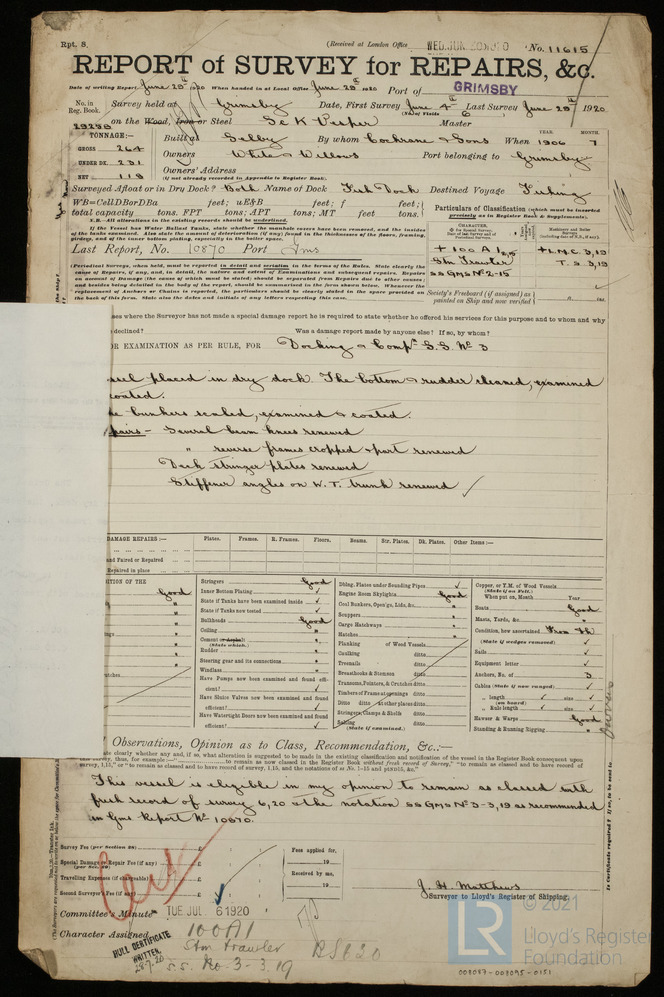 Rpt. 8.
(Received at London Office WED. JUN. 1920
No. 11615
REPORT of SURVEY for REPAIRS, &c.
Date of writing Report June 28th 1920 When handed in at Local Office June 28th 1920 Port of GRIMSBY
No. in Reg. Book.
Survey held at Grimsby Date, First Survey June 4th Last Survey June 28th 1920
(No. of Visits 6
on the Wood, Iron or Steel Sc K Vesper Master
TONNAGE:—
GROSS 264
UNDER DK. 231
NET 119
Built at Selby By whom Cochrane & Sons When 1906 7
YEAR. MONTH.
Owners White & Willows Port belonging to Grimsby
Owners' Address
(if not already recorded in Appendix to Register Book).
Surveyed Afloat or in Dry Dock? Both Name of Dock Fish Dock Destined Voyage Fishing
WB=CellDBorDBa feet; uE&B feet; f feet;
total capacity tons. FPT tons; APT tons; MT feet tons.
N.B.—All alterations in the existing records should be underlined.
Particulars of Classification (which must be inserted precisely as in Register Book & Supplements).
Last Report, No. 10870 Port Gms
+ 100 A 1
Stm Trawler
SS GMS No 2-15
+ L.M.C. 3,19
T. S. 3,19
Society's Freeboard (if assigned) as painted on Ship and now verified
ses where the Surveyor has not made a special damage report he is required to state whether he offered his services for this purpose and to whom and why
declined? Was a damage report made by anyone else? If so, by whom?
OR EXAMINATION AS PER RULE, FOR Docking & Compn S.S. No 3
sel placed in dry dock. The bottom & rudder cleaned, examined
coated.
e bunkers scaled, examined & coated.
pairs - Several beam knees renewed
" reverse frames cropped & part renewed
Deck stringer plates renewed
Stiffener angles on W. T. trunk renewed
DAMAGE REPAIRS :— Plates. Frames. R. Frames. Floors. Beams. Str. Plates. Dk. Plates. Other Items :—
and Paired or Repaired
Repaired in place
ITION OF THE
Good
Stringers Good
Inner Bottom Plating
State if Tanks have been examined inside
State if Tanks now tested
Bulkheads Good
Ceiling "
Cement or Asphalt "
(State which.)
Rudder "
Steering gear and its connections "
Windlass "
Have Pumps now been examined and found efficient?
Have Sluice Valves now been examined and found efficient?
Have Watertight Doors now been examined and found efficient?
Dblng. Plates under Sounding Pipes
Engine Room Skylights Good
Coal Bunkers, Open'gs, Lids, &c. "
Scuppers "
Cargo Hatchways "
Hatches "
Planking of Wood Vessels
Caulking ditto
Treenails ditto
Breasthooks & Stemson ditto
Transoms, Pointers, & Crutches ditto
Timbers of Frame at openings ditto
Ditto ditto at other places ditto
Stringers, Clamps & Shelfs ditto
Salting ditto
(State if examined.)
Copper, or Y.M. of Wood Vessels
(State if on Felt.)
When put on, Month Year
Boats Good
Masts, Yards, &c. "
Condition, how ascertained From dk
(State if wedges removed)
Sails
Equipment letter
Anchors, No. of 3
Cables (State if now ranged)
" length size
(on board)
" Rule length size
Hawser & Warps Good
Standing & Running Rigging "
Observations, Opinion as to Class, Recommendation, &c.:—
This vessel is eligible in my opinion to remain as classed with
fresh record of survey 6,20 & the notation SS GMS No 3-3,19 as recommended
in Gms Report No 10870.
Survey Fee (per Section 28) £
Special Damage or Repair Fee (if any) £
(per Sec. 28)
Travelling Expenses (if chargeable) £
Second Surveyor's Fee (if any) £
Fees applied for,
19
Received by me,
19
J. H. Matthews
Surveyor to Lloyd's Register of Shipping.
Committee's Minute TUE JUL 6 1920
Character Assigned 100A1
Stm Trawler
S.S. No. 3-3.19
BULL CERTIFICATE
WRITTEN.
© 2021
LR
Lloyd's Register
Foundation
008087-008095-0151